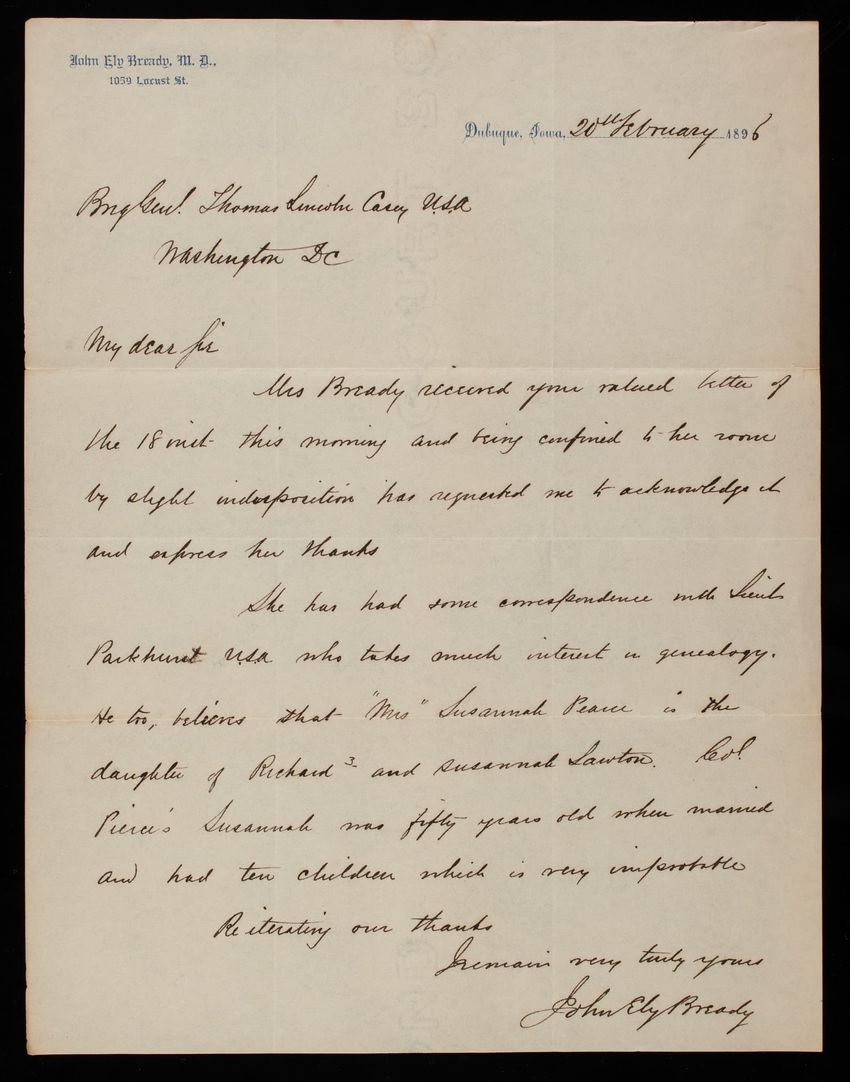 John Ely Bready, M. D.,
1059 Locust St.
Dubuque, Iowa, 20th February 1896
Brig Genl. Thomas Lincoln Casey U.S.A
Washington DC
My dear Sir
Mrs Bready received your valued letter of
the 18 inst this morning and being confined to her room
by slight indisposition has requested me to acknowledge it
and express her thanks
She has had some correspondence with Lieut
Parkhurst U.S.A. who takes much interest in genealogy.
He too, believes that "Mrs" Susannah Pearce is the
daughter of Richard 3 and Susannah Lawton. Col.
Pierce's Susannah was fifty years old when married
and had ten children which is very improbable
Reiterating our thanks
I remain very truly yours
John Ely Bready